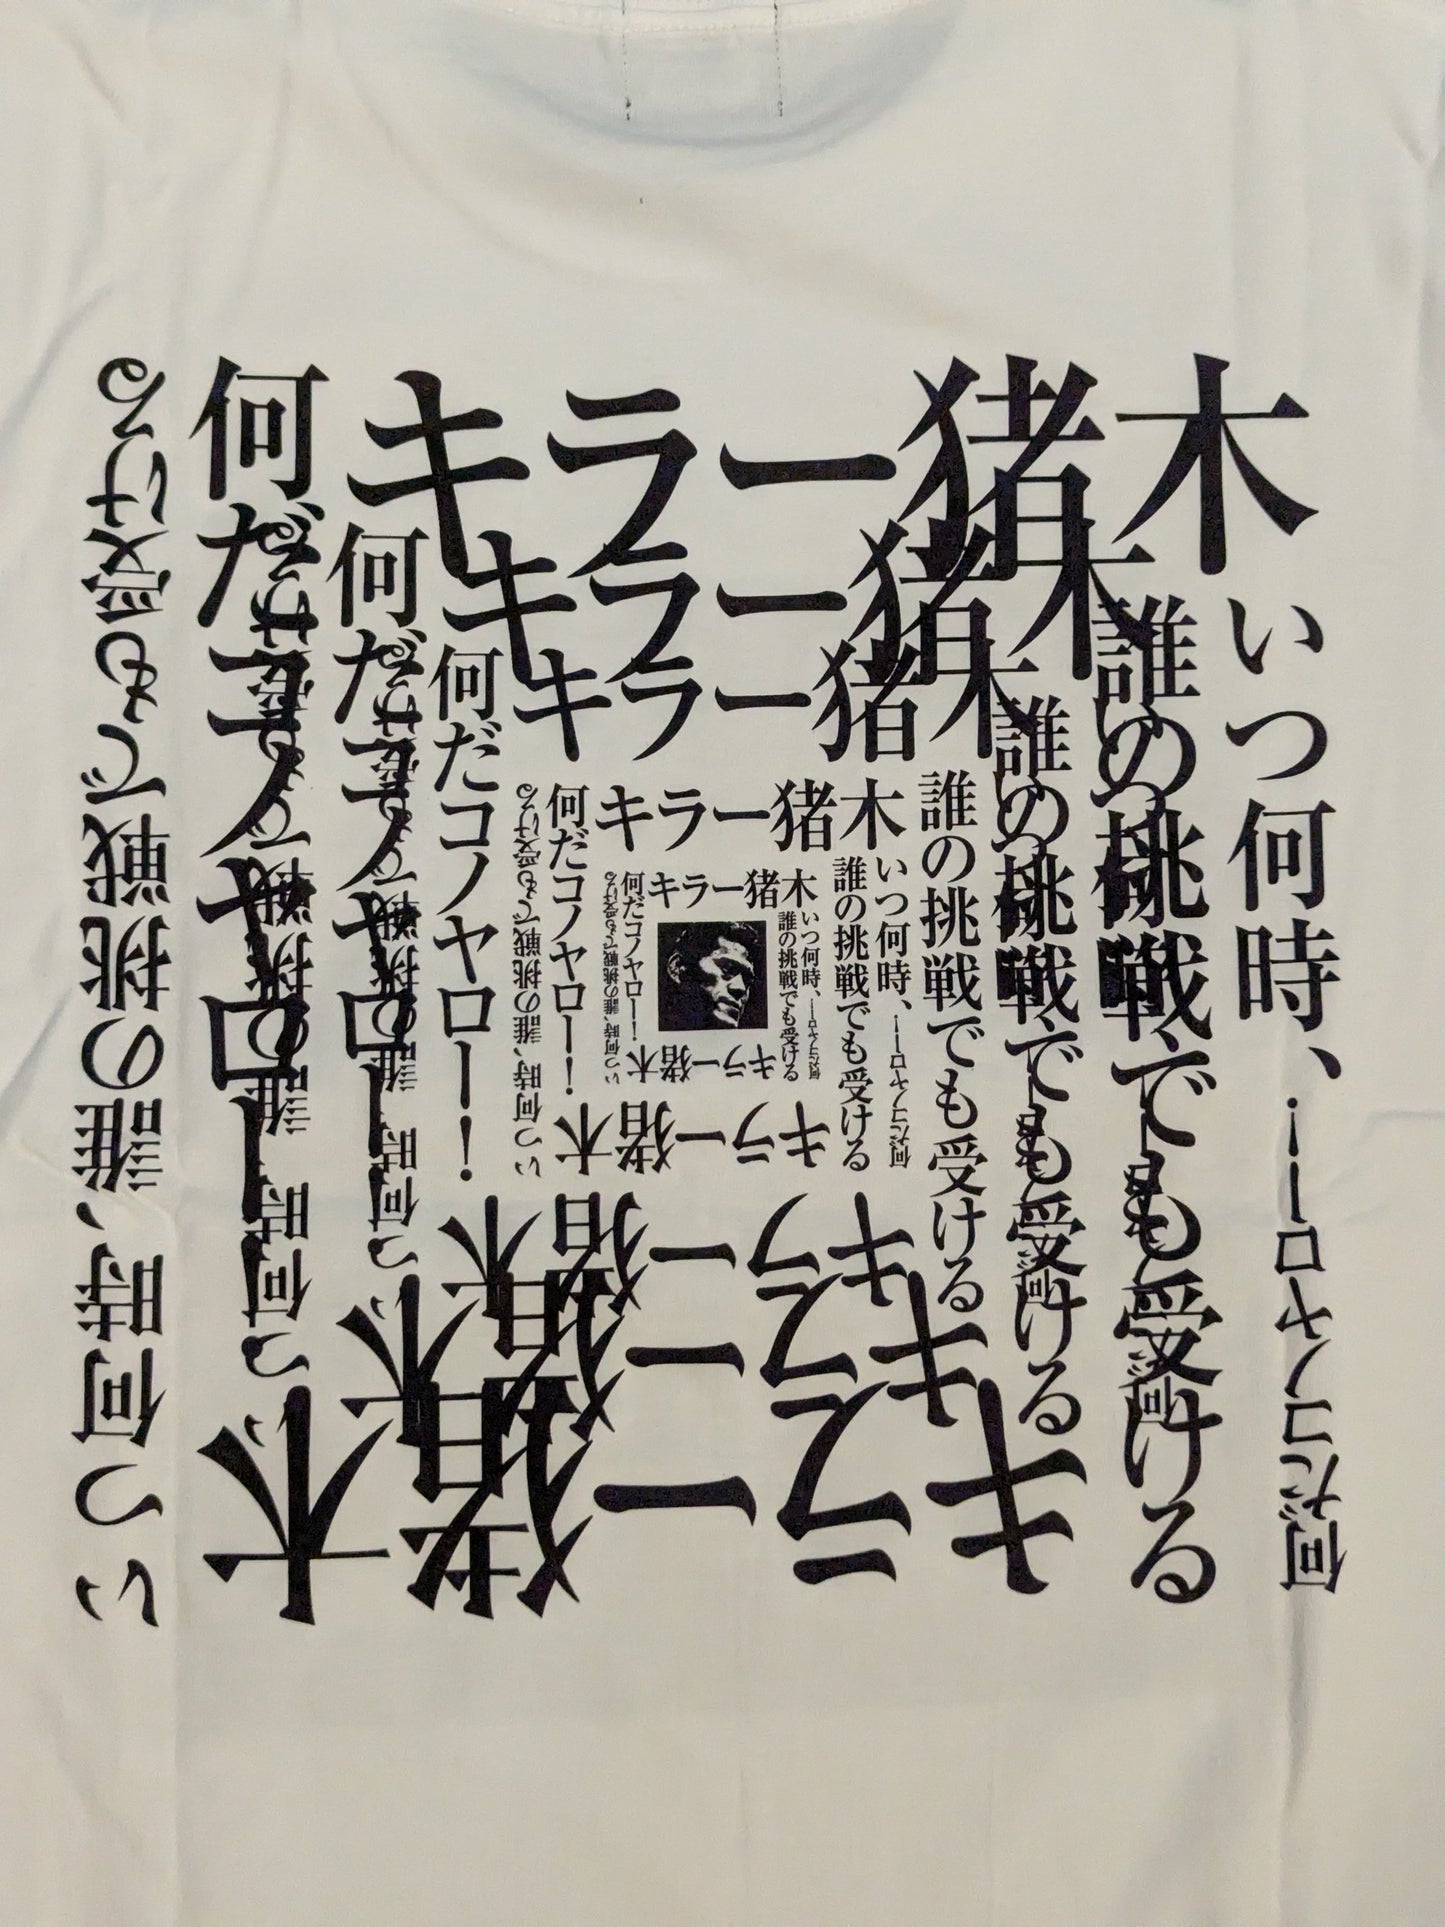 キラー猪木
いつ何時、
誰の挑戦でも受ける
何だコノヤロー！
いつ何時、誰の挑戦でも受ける
キラー猪木
何だコノヤロー！
キラー猪木
誰の挑戦でも受ける
何だコノヤロー！
キラー猪木
誰の挑戦でも受ける
何だコノヤロー！
いつ何時、誰の挑戦でも受ける
キラー猪木
いつ何時、
誰の挑戦でも受ける
何だコノヤロー！
何だコノヤロー！
いつ何時、誰の挑戦でも受ける
キラー猪木
いつ何時、
誰の挑戦でも受ける
何だコノヤロー！
キラー猪木
キラー猪木
キラー猪木
キラー猪木
キラー猪木